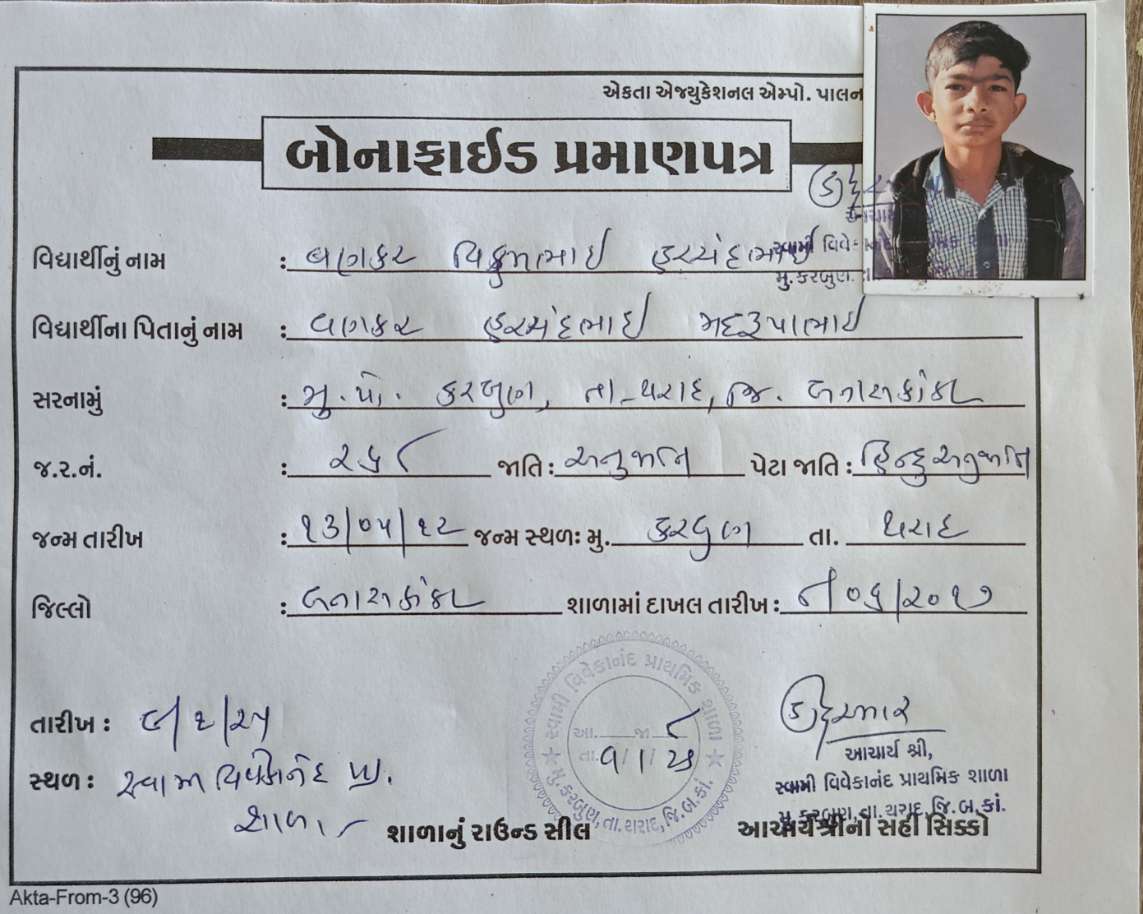 એકતા એજ્યુકેશનલ એમ્પો. પાલન
બોનાફાઈડ પ્રમાણપત્ર
વિદ્યાર્થીનું નામ : વણકર વિક્રમભાઈ હરચંદભાઈ
વિદ્યાર્થીના પિતાનું નામ : વણકર હરચંદભાઈ મદરૂપાભાઈ
સરનામું : મુ.પો. કરબુણ, તા-થરાદ, જિ. બનાસકાંઠા
જ.ર.નં. : ૨૬૮ જાતિ : અનુજાતિ પેટા જાતિ : હિન્દુ અનુજાતિ
જન્મ તારીખ : ૧૩/૦૫/૧૨ જન્મ સ્થળઃ મુ. કરબુણ તા. થરાદ
જિલ્લો : બનાસકાંઠા શાળામાં દાખલ તારીખ : /૦૬/૨૦૧૭
તારીખ : ૯/૧/૨૫
સ્થળ : સ્વામી વિવેકાનંદ પ્રા.
શાળા
સ્વામી વિવેકાનંદ પ્રાથમિક શાળા
આ. જા.
તા.
મુ. કરબુણ, તા. થરાદ, જિ. બ. કાં.
આચાર્ય શ્રી,
સ્વામી વિવેકાનંદ પ્રાથમિક શાળા
મુ. કરબુણ, તા. થરાદ, જિ. બ. કાં.
શાળાનું રાઉન્ડ સીલ
આચાર્યશ્રીની સહી સિક્કો
Akta-From-3 (96)